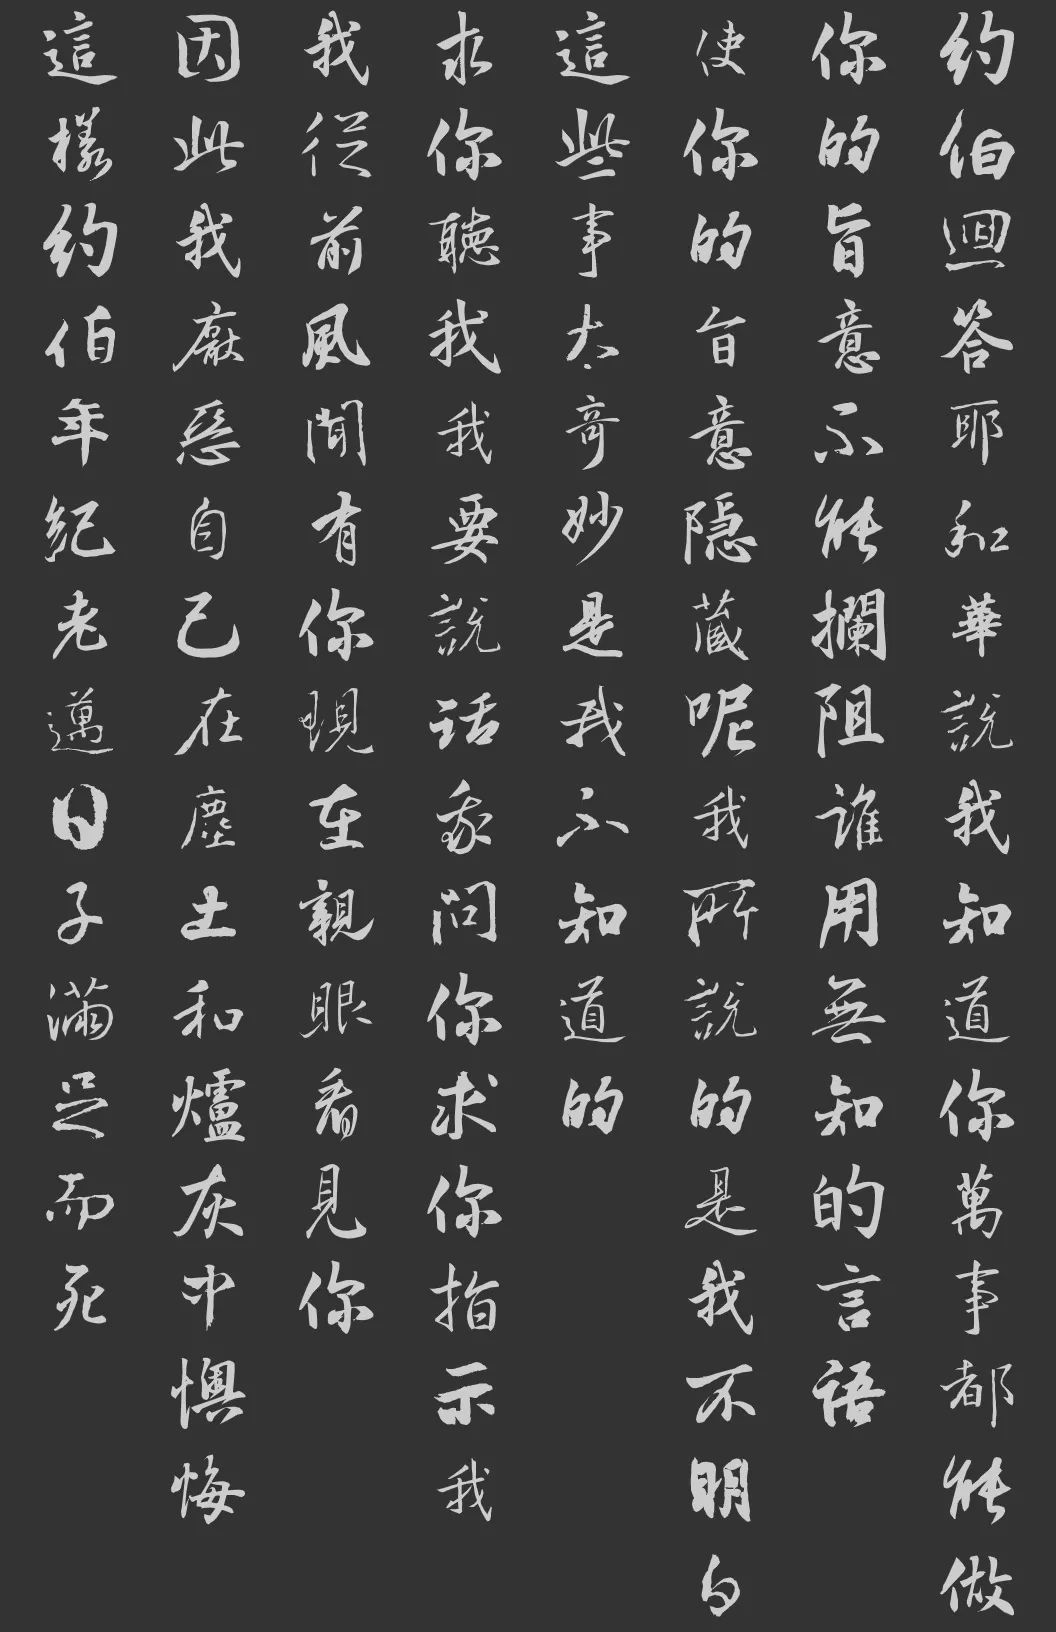 約伯迴答耶和華說我知道你萬事都能做
你的旨意不能攔阻誰用無知的言語
使你的旨意隱蔵呢我所說的是我不明白
這些事太奇妙是我不知道的
求你聽我我要說话我問你求你指示我
我從前風聞有你現在親眼看見你
因此我厭惡自己在塵土和爐灰中懊悔
這樣約伯年紀老邁日子滿足而死